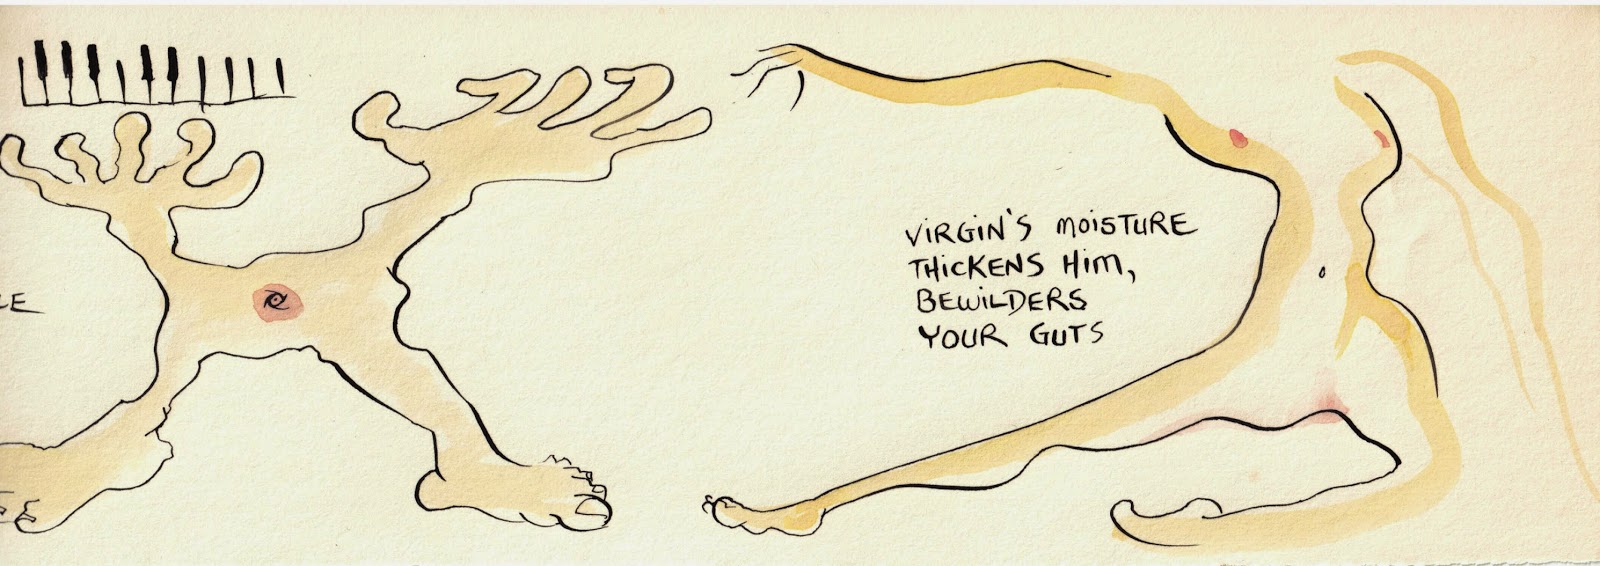 LE
VIRGIN'S MOISTURE
THICKENS HIM,
BEWILDERS
YOUR GUTS